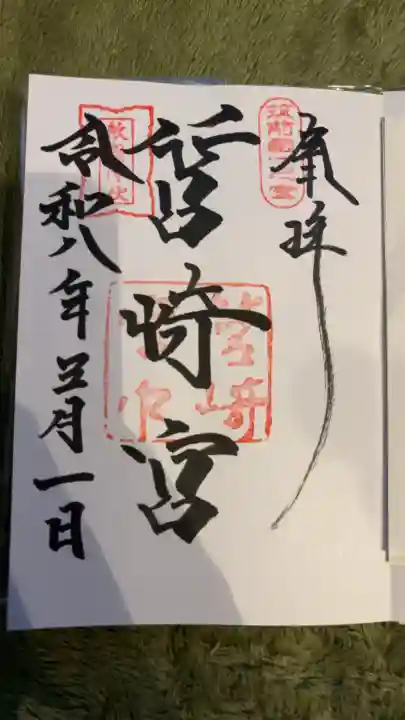 奉拝
筑前國一之宮
筥崎宮
筥崎
敵国降伏
令和八年三月一日